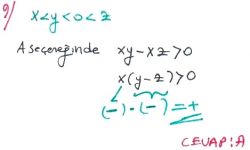 9/ x<y<0<z
A seçeneğinde xy-xz>0
x(y-z)>0
(-)·(-)=+
CEVAP:A